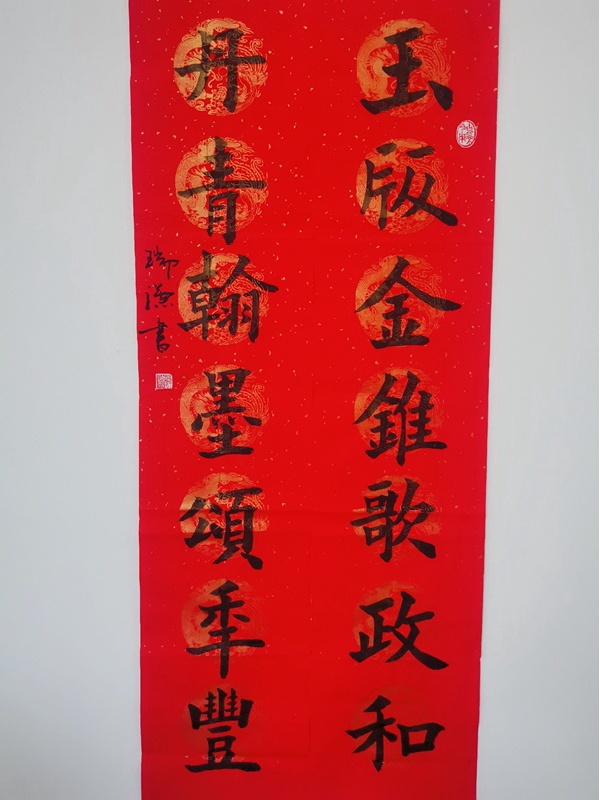 玉版金錐歌政和
丹青翰墨頌年豐
瑞謙書